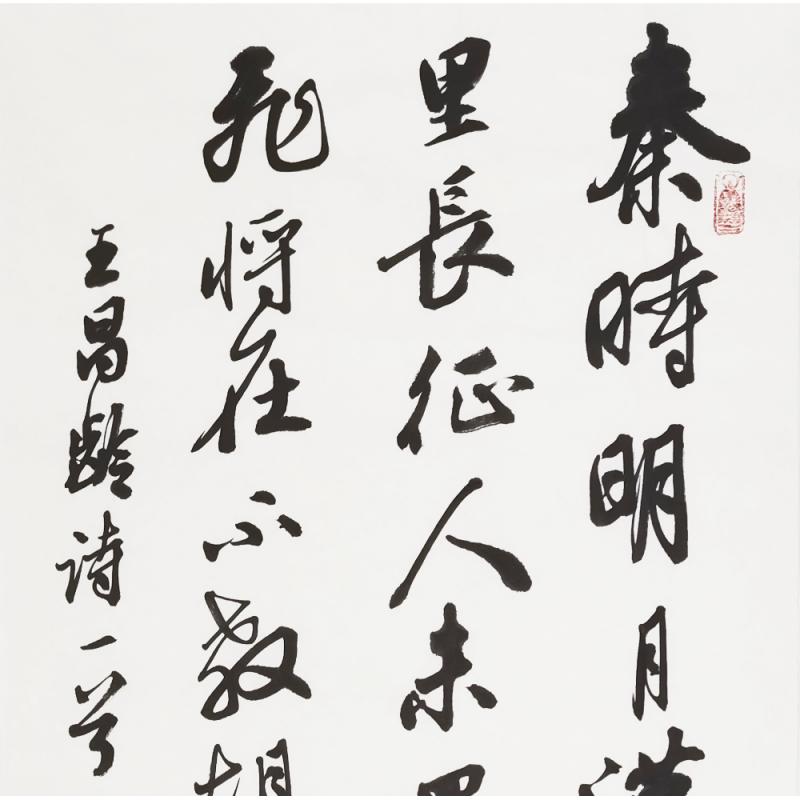 秦時明月漢
里長征人未
飛将在不教胡
王昌齡诗一首